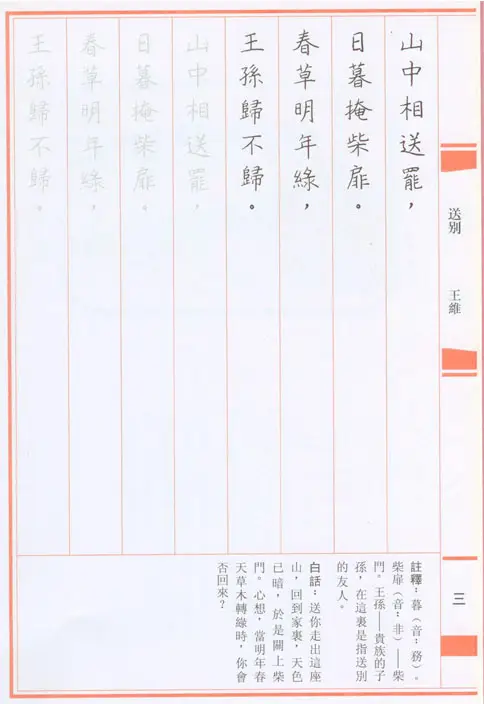 送別　王維
三
山中相送罷，
日暮掩柴扉。
春草明年綠，
王孫歸不歸。
山中相送罷，
日暮掩柴扉。
春草明年綠，
王孫歸不歸。
註釋：暮（音：務）。
柴扉（音：非）——柴
門。王孫——貴族的子
孫，在這裏是指送別
的友人。
白話：送你走出這座
山，回到家裏，天色
已暗，於是關上柴
門。心想，當明年春
天草木轉綠時，你會
否回來？